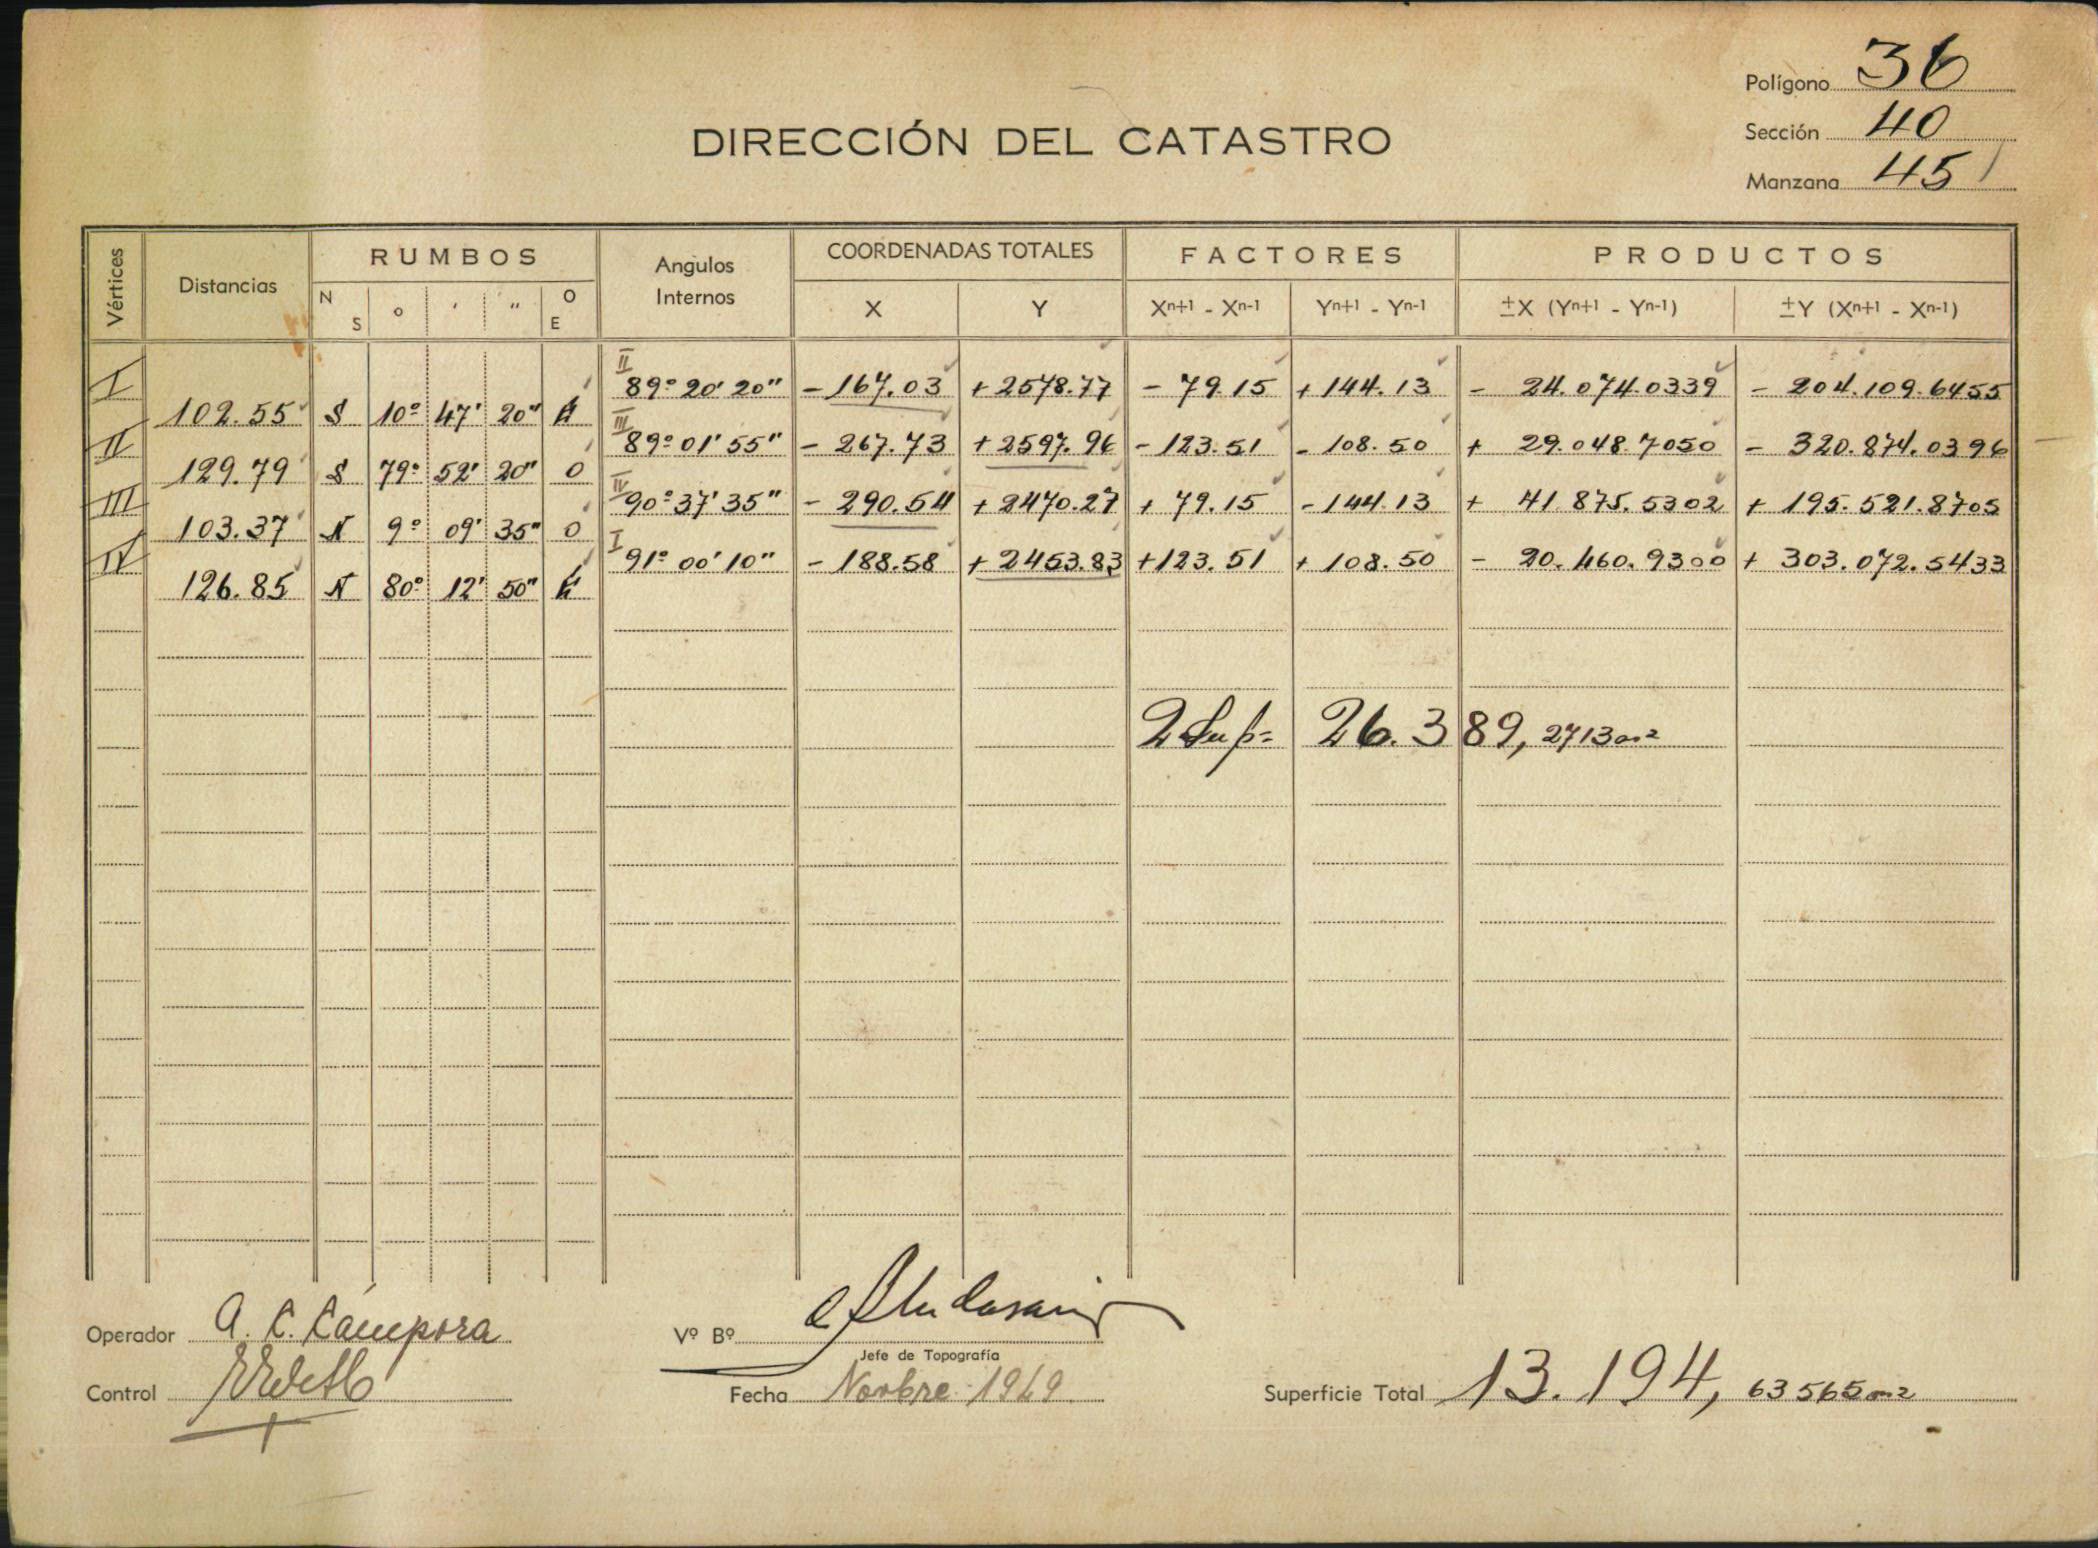 Polígono 36
DIRECCIÓN DEL CATASTRO
Sección 40
Manzana 45
Vértices Distancias RUMBOS Angulos Internos COORDENADAS TOTALES FACTORES PRODUCTOS
N S o ' '' O E X Y Xn+1 - Xn-1 Yn+1 - Yn-1 ±X (Yn+1 - Yn-1) ±Y (Xn+1 - Xn-1)
I II 89º 20' 20" - 167.03 + 2578.77 - 79.15 + 144.13 - 24.074.0339 - 204.109.6455
102.55 S 10º 47' 20" E
II III 89º 01' 55" - 267.73 + 2597.96 - 123.51 - 108.50 + 29.048.7050 - 320.874.0396
129.79 S 79º 52' 20" O
III IV 90º 37' 35" - 290.54 + 2470.27 + 79.15 - 144.13 + 41.875.5302 + 195.521.8705
103.37 N 9º 09' 35" O
IV I 91º 00' 10" - 188.58 + 2453.83 + 123.51 + 108.50 - 20.460.9300 + 303.072.5433
126.85 N 80º 12' 50" E
2 Sup= 26.389,2713 m2
Operador A. C. Cámpora
Vº Bº
Jefe de Topografía
Control
Fecha Novbre 1949
Superficie Total 13.194,63565 m2